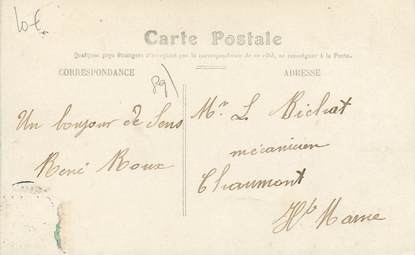 10€
Carte Postale
Quelques pays étrangers n'acceptent pas la correspondance de ce côté, se renseigner à la Poste.
CORRESPONDANCE
ADRESSE
89)
Un bonjour de Sens
René Roux
Mr L Bichat
mécanicien
Chaumont
Hte Marne